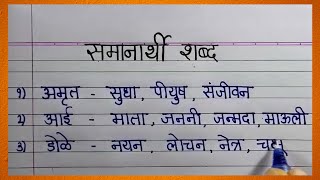 समानार्थी शब्द
१) अमृत - सुधा, पीयुष, संजीवन
२) आई - माता, जननी, जन्मदा, माऊली
३) डोळे - नयन, लोचन, नेत्र,